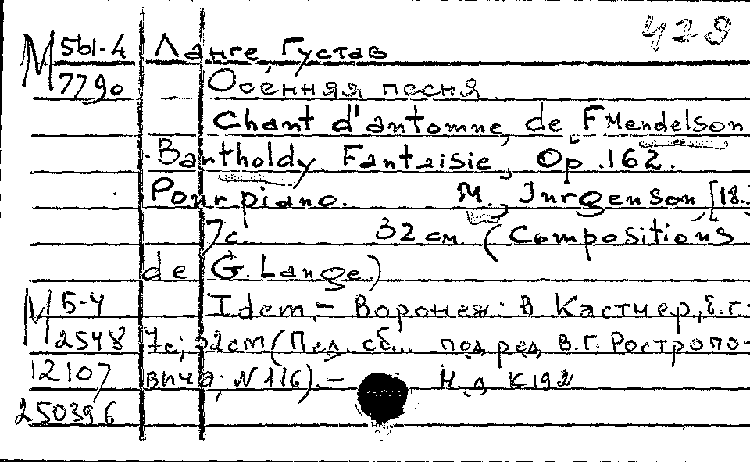 429
М 561-4 Ланге, Густав
7790 Осенняя песня
Chant d'antomne, de F Mendelson
Bantholdy Fantaisie, Op. 162.
Pour piano. М., Jurgenson, [18..
7с. 32 см. (Compositions
de G. Lange)
М 5-4 Idem. – Воронеж: В. Кастнер, б.г.
12548 7с., 32 см (Пед. сб... под ред. В.Г. Ростропо-
12107 вича; N 116). – Н.д. К192
250396